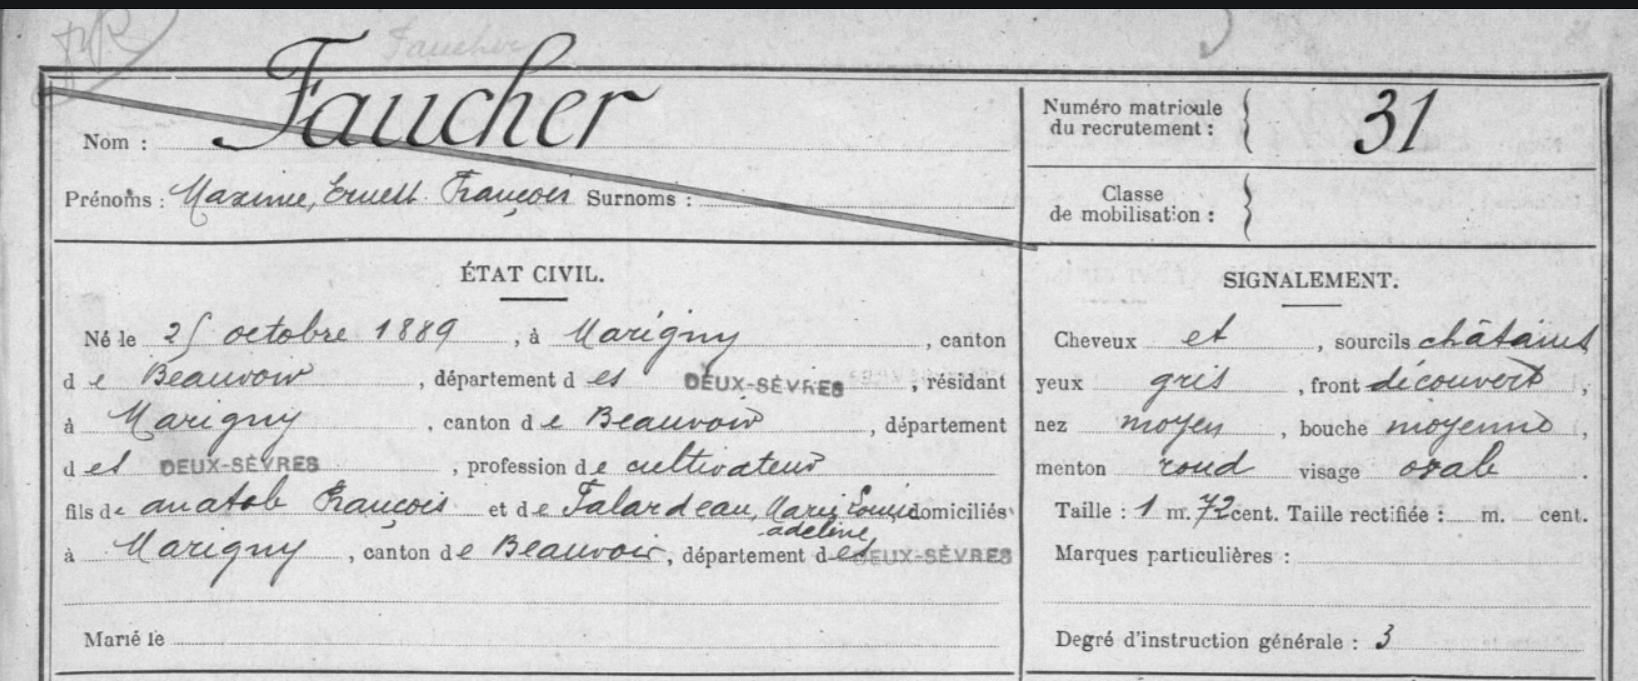 Faucher
Nom : Faucher
Numéro matricule du recrutement : 31
Prénoms : Maxime, Ernest François Surnoms :
Classe de mobilisation :
ÉTAT CIVIL.
Né le 25 octobre 1889, à Marigny, canton
de Beauvoir, département des DEUX-SÈVRES, résidant
à Marigny, canton de Beauvoir, département
des DEUX-SÈVRES, profession de cultivateur
fils de anatole François et de Talardeau, Marie Louise adeline domiciliés
à Marigny, canton de Beauvoir, département des DEUX-SÈVRES
Marié le
SIGNALEMENT.
Cheveux et, sourcils châtains
yeux gris, front découvert,
nez moyen, bouche moyenne,
menton rond visage ovale.
Taille : 1 m. 72 cent. Taille rectifiée : m. cent.
Marques particulières :
Degré d'instruction générale : 3